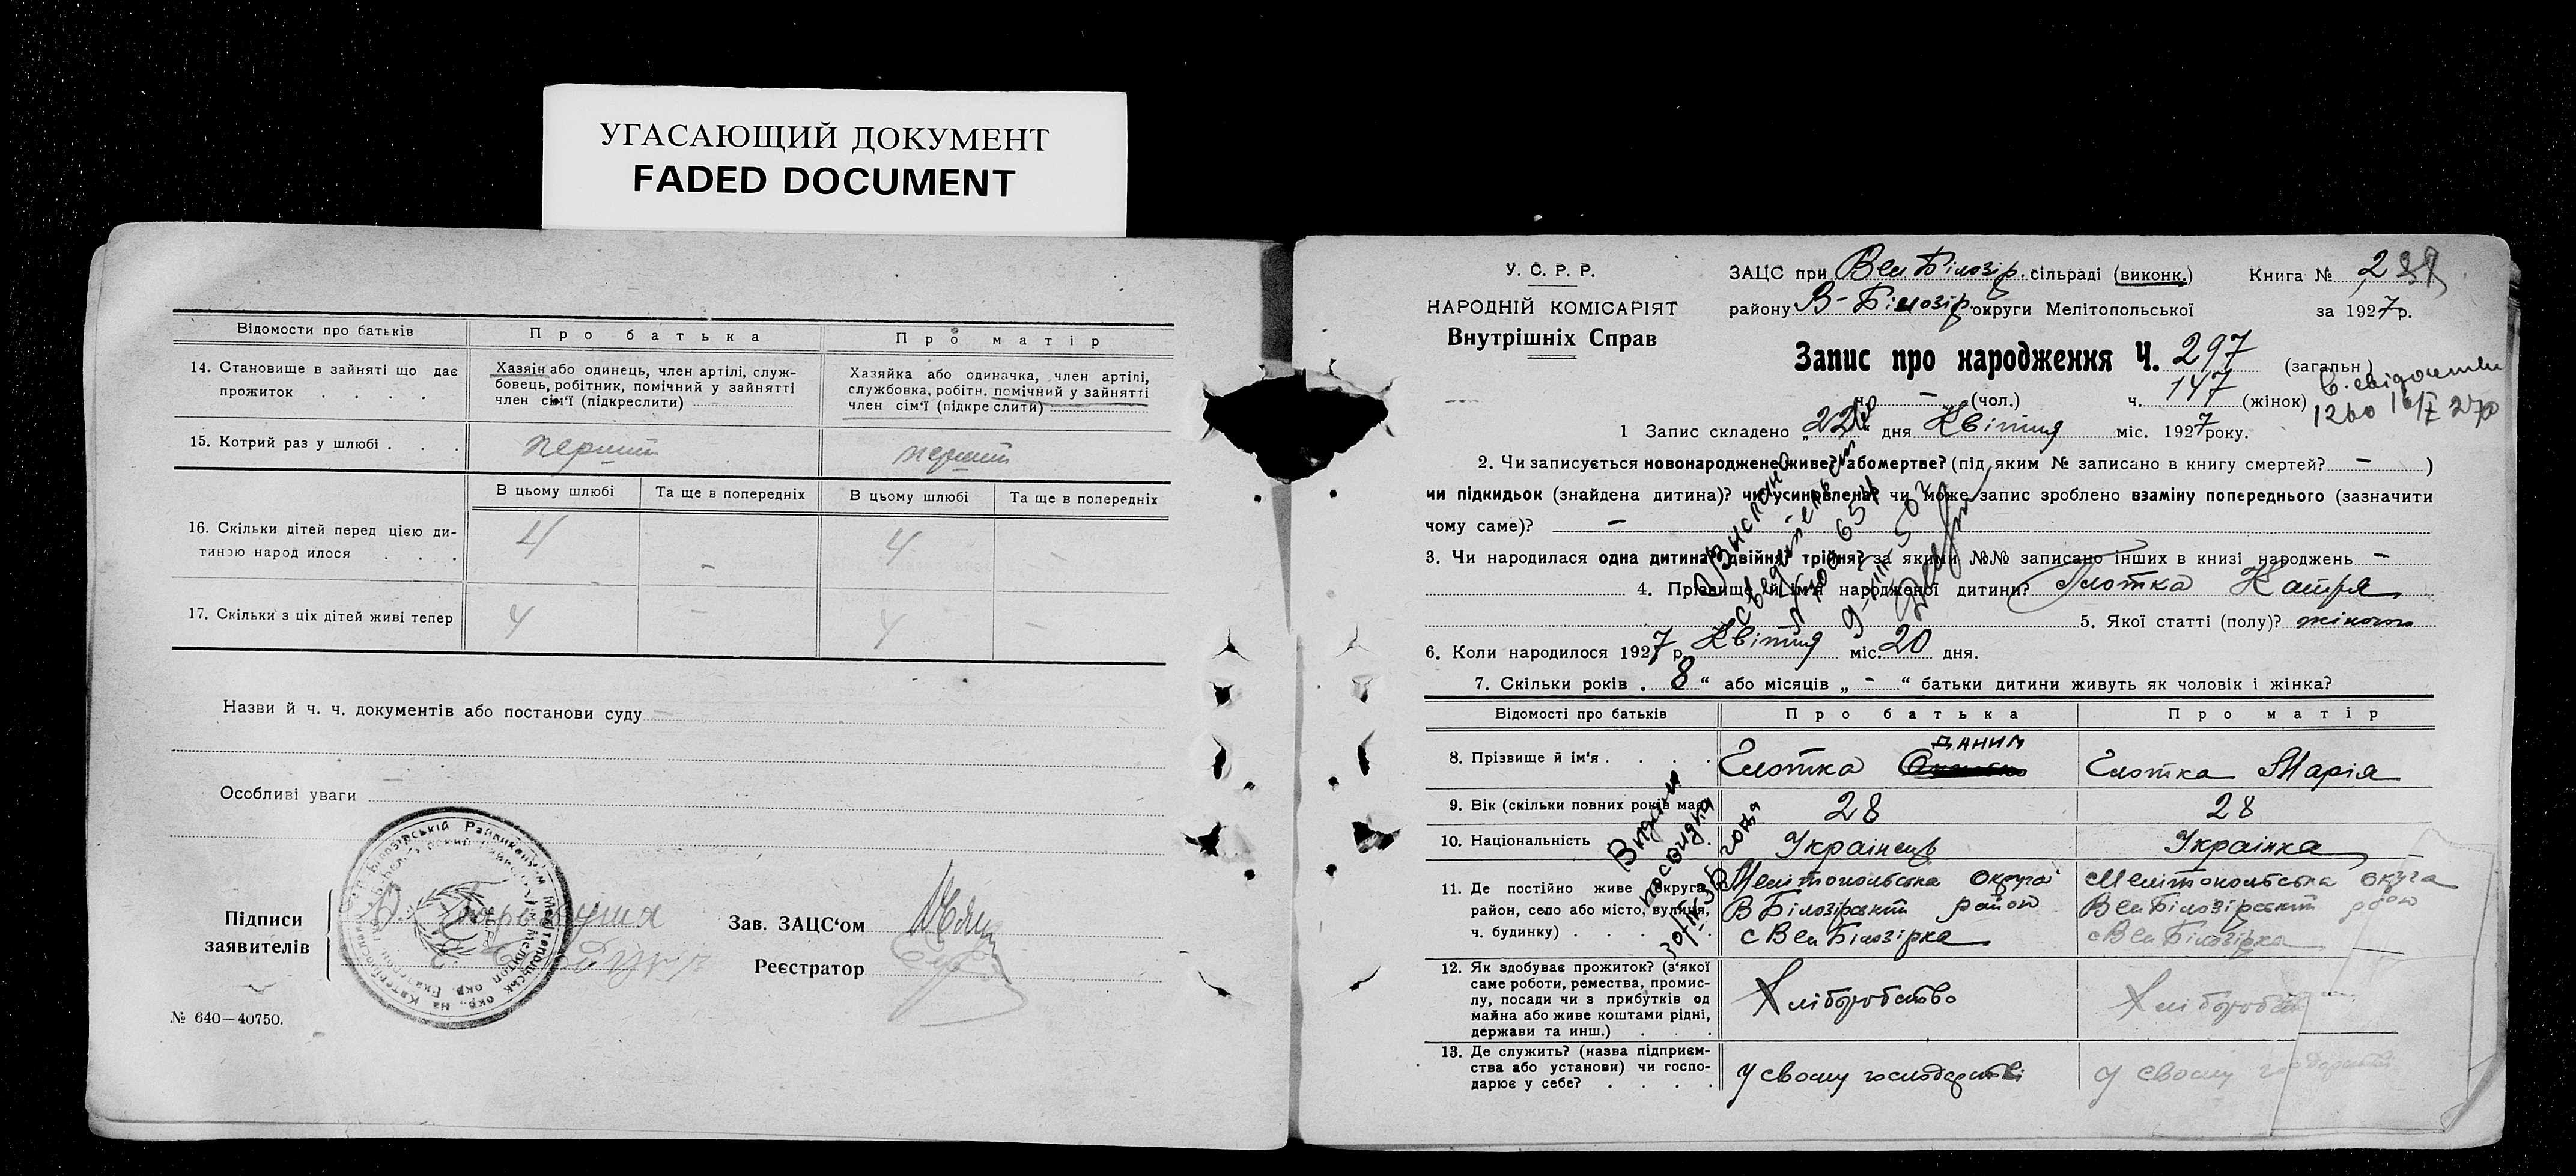 УГАСАЮЩИЙ ДОКУМЕНТ
FADED DOCUMENT
Відомости про батьків
Про батька
Про матір
14. Становище в зайняті що дає прожиток . . . .
Хазяін або одинець, член артілі, службовець, робітник, помічний у зайнятті член сім'ї (підкреслити)
Хазяйка або одиначка, член артілі, службовка, робітн. помічний у зайнятті член сім'ї (підкре слити)
15. Котрий раз у шлюбі . . .
перший
перший
В цьому шлюбі
Та ще в попередніх
В цьому шлюбі
Та ще в попередніх
16. Скільки дітей перед цією ди-
тиною народ илося . . .
4
-
4
-
17. Скільки з ціх дітей живі тепер
4
-
4
-
Назви й ч. ч. документів або постанови суду
Особливі уваги
Підписи
заявителів
Зав. ЗАЦС'ом
Реєстратор
№ 640—40750.
У. С. Р. Р.
НАРОДНІЙ КОМІСАРІЯТ
Внутрішніх Справ
ЗАЦС при Вел Білозір. сільраді (виконк.)
Книга № 2
району В-Білозір округи Мелітопольської
за 1927р.
Запис про народження Ч. 297 (загальн)
ч. - (чол.) ч. 147 (жінок)
1 Запис складено „22" дня Квітня міс. 1927 року.
2. Чи записується новонароджене живе? або мертве? (під яким № записано в книгу смертей? - )
чи підкидьок (знайдена дитина)? чи усиновлена? чи може запис зроблено взаміну попереднього (зазначити
чому саме)? -
3. Чи народилася одна дитина? двійня? трійня? за якими №№ записано інших в книзі народжень -
4. Прізвище й ім'я народженої дитини? Глотка Катря
5. Якої статті (полу)? жіночого
6. Коли народилося 1927 р. Квітня міс. 20 дня.
7. Скільки років „ 8 " або місяців „ - " батьки дитини живуть як чоловік і жінка?
Відомості про батьків
Про батька
Про матір
8. Прізвище й ім'я . . . .
Даним
Глотка
Глотка Марія
9. Вік (скільки повних років має)
28
28
10. Національність
Українець
Українка
11. Де постійно живе (округа,
район, село або місто, вулиця,
ч. будинку) . . . .
Мелітопольська округа
В Білозірський район
с Вел Білозірка
Мелітопольська округа
Вел Білозірський район
с Вел Білозірка
12. Як здобуває прожиток? (з'якої
саме роботи, ремества, промис-
лу, посади чи з прибутків од
майна або живе коштами рідні,
держави та инш.) . . .
Хліборобство
Хліборобство
13. Де служить? (назва підприєм-
ства або установи) чи госпо-
дарює у себе? . . . .
у своему господарстві
у своему господарстві